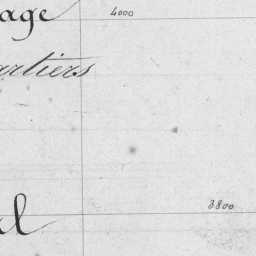 age 4000
artiers
al 3800